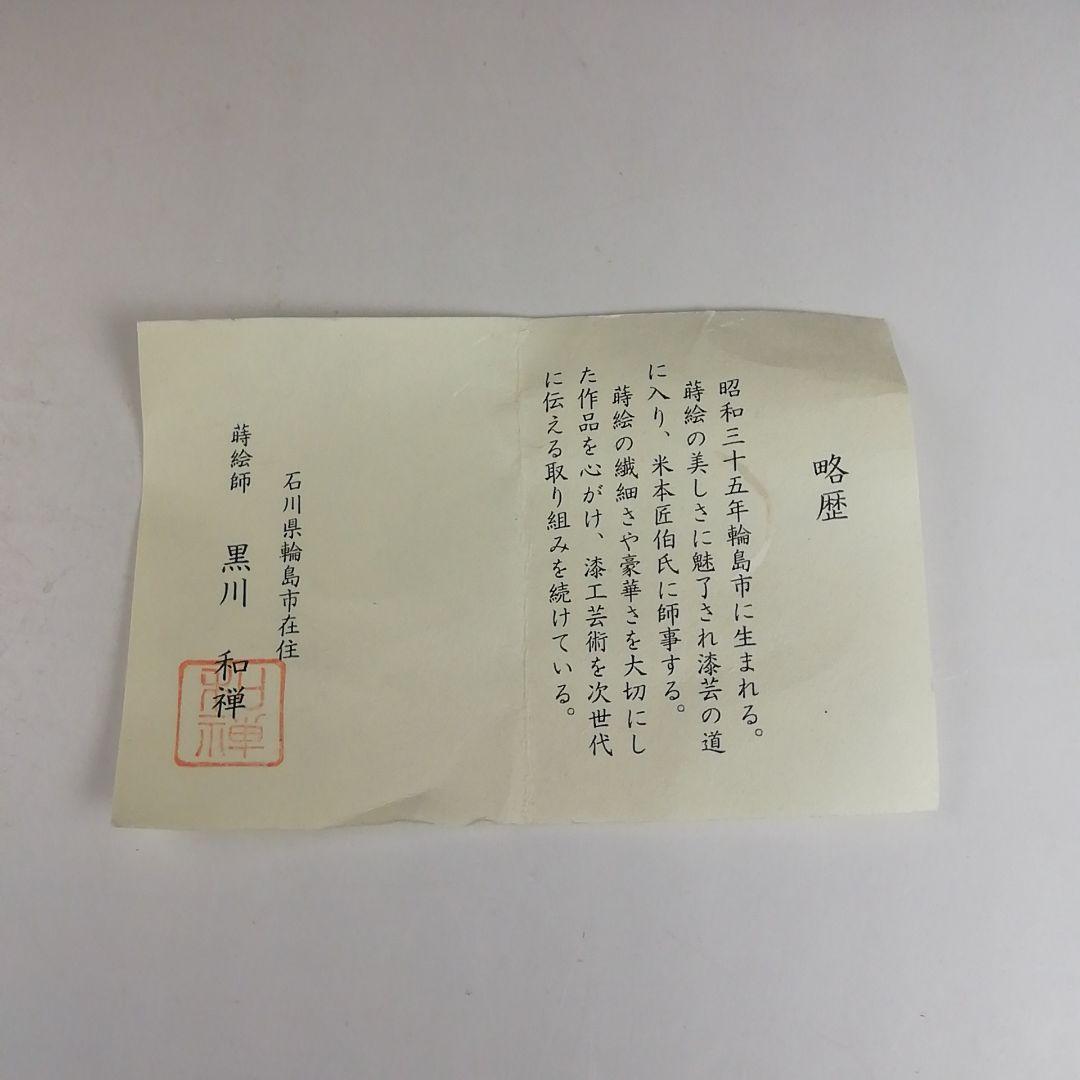 略歴
昭和三十五年輪島市に生まれる。
蒔絵の美しさに魅了され漆芸の道
に入り、米本匠伯氏に師事する。
蒔絵の繊細さや豪華さを大切にし
た作品を心がけ、漆工芸術を次世代
に伝える取り組みを続けている。
石川県輪島市在住
蒔絵師 黒川 和禅
和禅